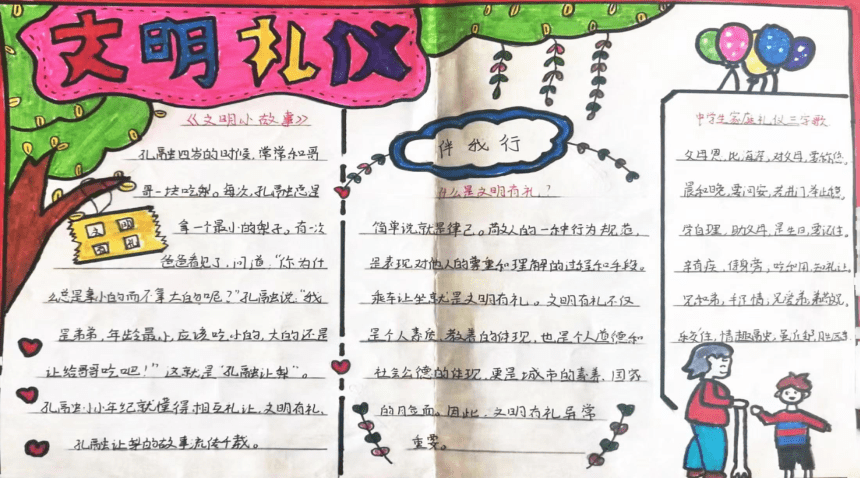 文明礼仪
《文明小故事》
孔融四岁的时候,常常和哥
哥一块吃梨。每次,孔融总是
拿一个最小的梨子。有一次
爸爸看见了,问道:“你为什
么总是拿小的而不拿大的呢?”孔融说:“我
是弟弟,年龄最小,应该吃小的,大的还是
让给哥哥吃吧!”这就是“孔融让梨”。
孔融小小年纪就懂得相互礼让,文明有礼,
孔融让梨的故事流传千载。
文明
有礼
伴我行
什么是文明有礼?
简单说就是律己。敬人的一种行为规范,
是表现对他人的尊重和理解的过程和手段。
乘车让坐就是文明有礼。文明有礼不仅
是个人素质、教养的体现,也是个人道德和
社会公德的体现,更是城市的素养,国家
的脸面。因此,文明有礼异常
重要。
中学生家庭礼仪三字歌
父母恩,比海深,对父母,要称您,
晨和晚,要问安,
学自理,助父母,是生日,要记住。
亲有疾,
兄和弟,手足情,兄爱弟,